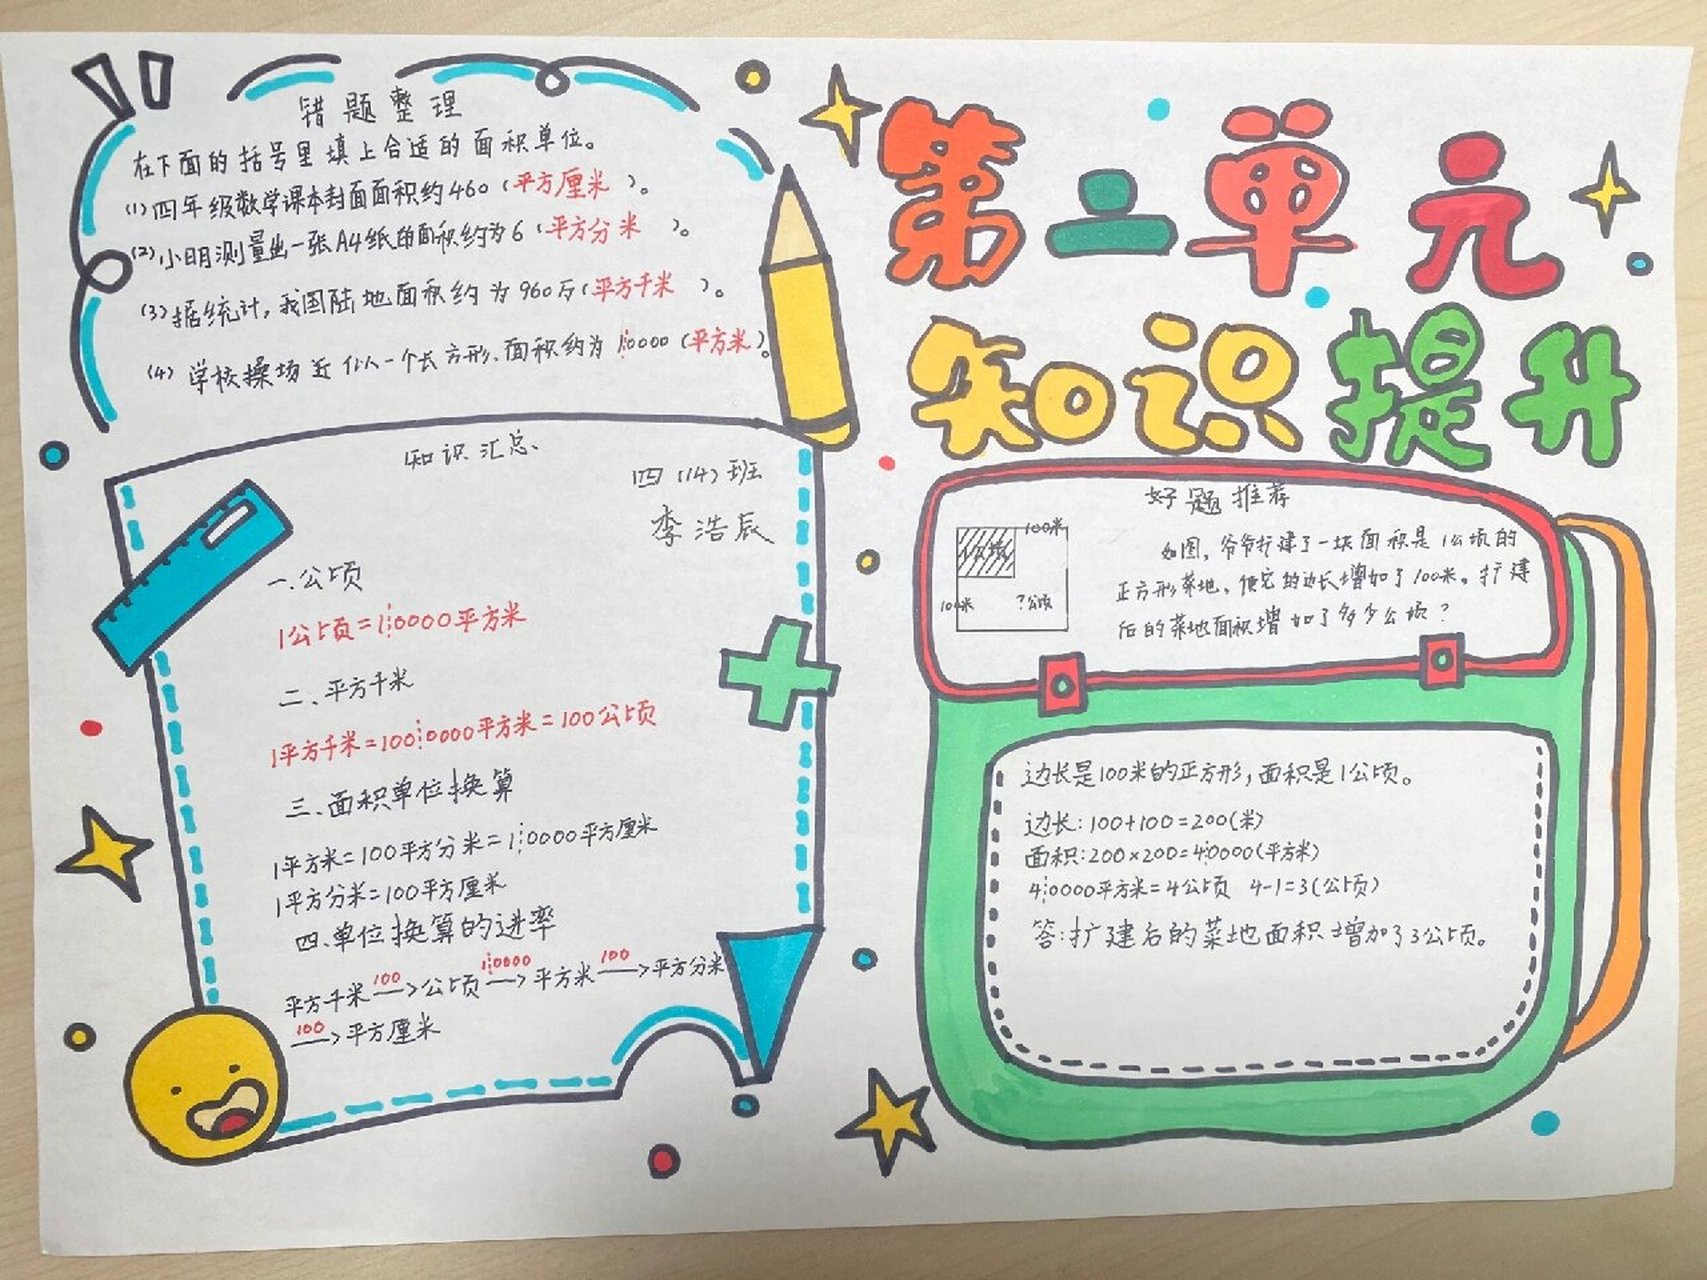 第二单元
知识提升
错题整理
在下面的括号里填上合适的面积单位。
(1)四年级数学课本封面面积约460(平方厘米)。
(2)小明测量出一张A4纸的面积约为6(平方分米)。
(3)据统计,我国陆地面积约为960万(平方千米)。
(4)学校操场近似一个长方形、面积约为1┊0000(平方米)。
知识汇总、
四(14)班
李浩辰
一.公顷
1公顷=1┊0000平方米
二、平方千米
1平方千米=100┊0000平方米=100公顷
三、面积单位换算
1平方米=100平方分米=1┊0000平方厘米
1平方分米=100平方厘米
四.单位换算的进率
平方千米 100→ 公顷 1┊0000→ 平方米 100→ 平方分米
100→ 平方厘米
好题推荐
100米
1公顷
100米 ?公顷
如图,爷爷扩建了一块面积是1公顷的
正方形菜地,使它的边长增加了100米。扩建
后的菜地面积增加了多少公顷?
边长是100米的正方形,面积是1公顷。
边长:100+100=200(米)
面积:200×200=4┊0000(平方米)
4┊0000平方米=4公顷 4-1=3(公顷)
答:扩建后的菜地面积增加了3公顷。